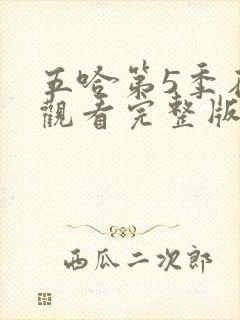 五哈第5季
觀看完整版
西瓜二次郎